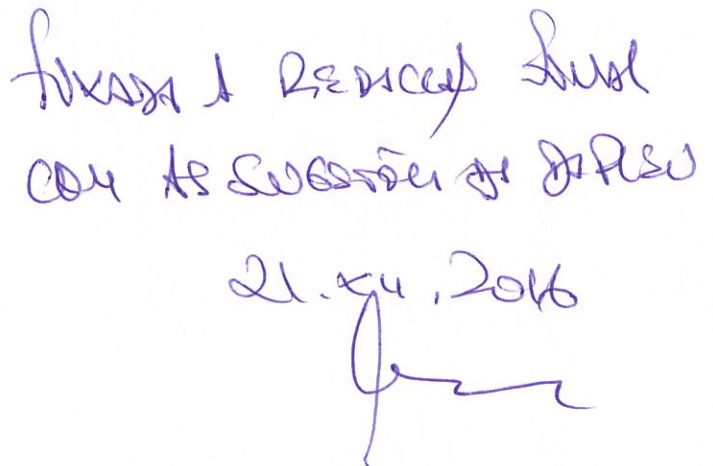 FIXADA A REDACÇÃO FINAL
COM AS SUGESTÕES DA DAPLEN
21.XII.2016